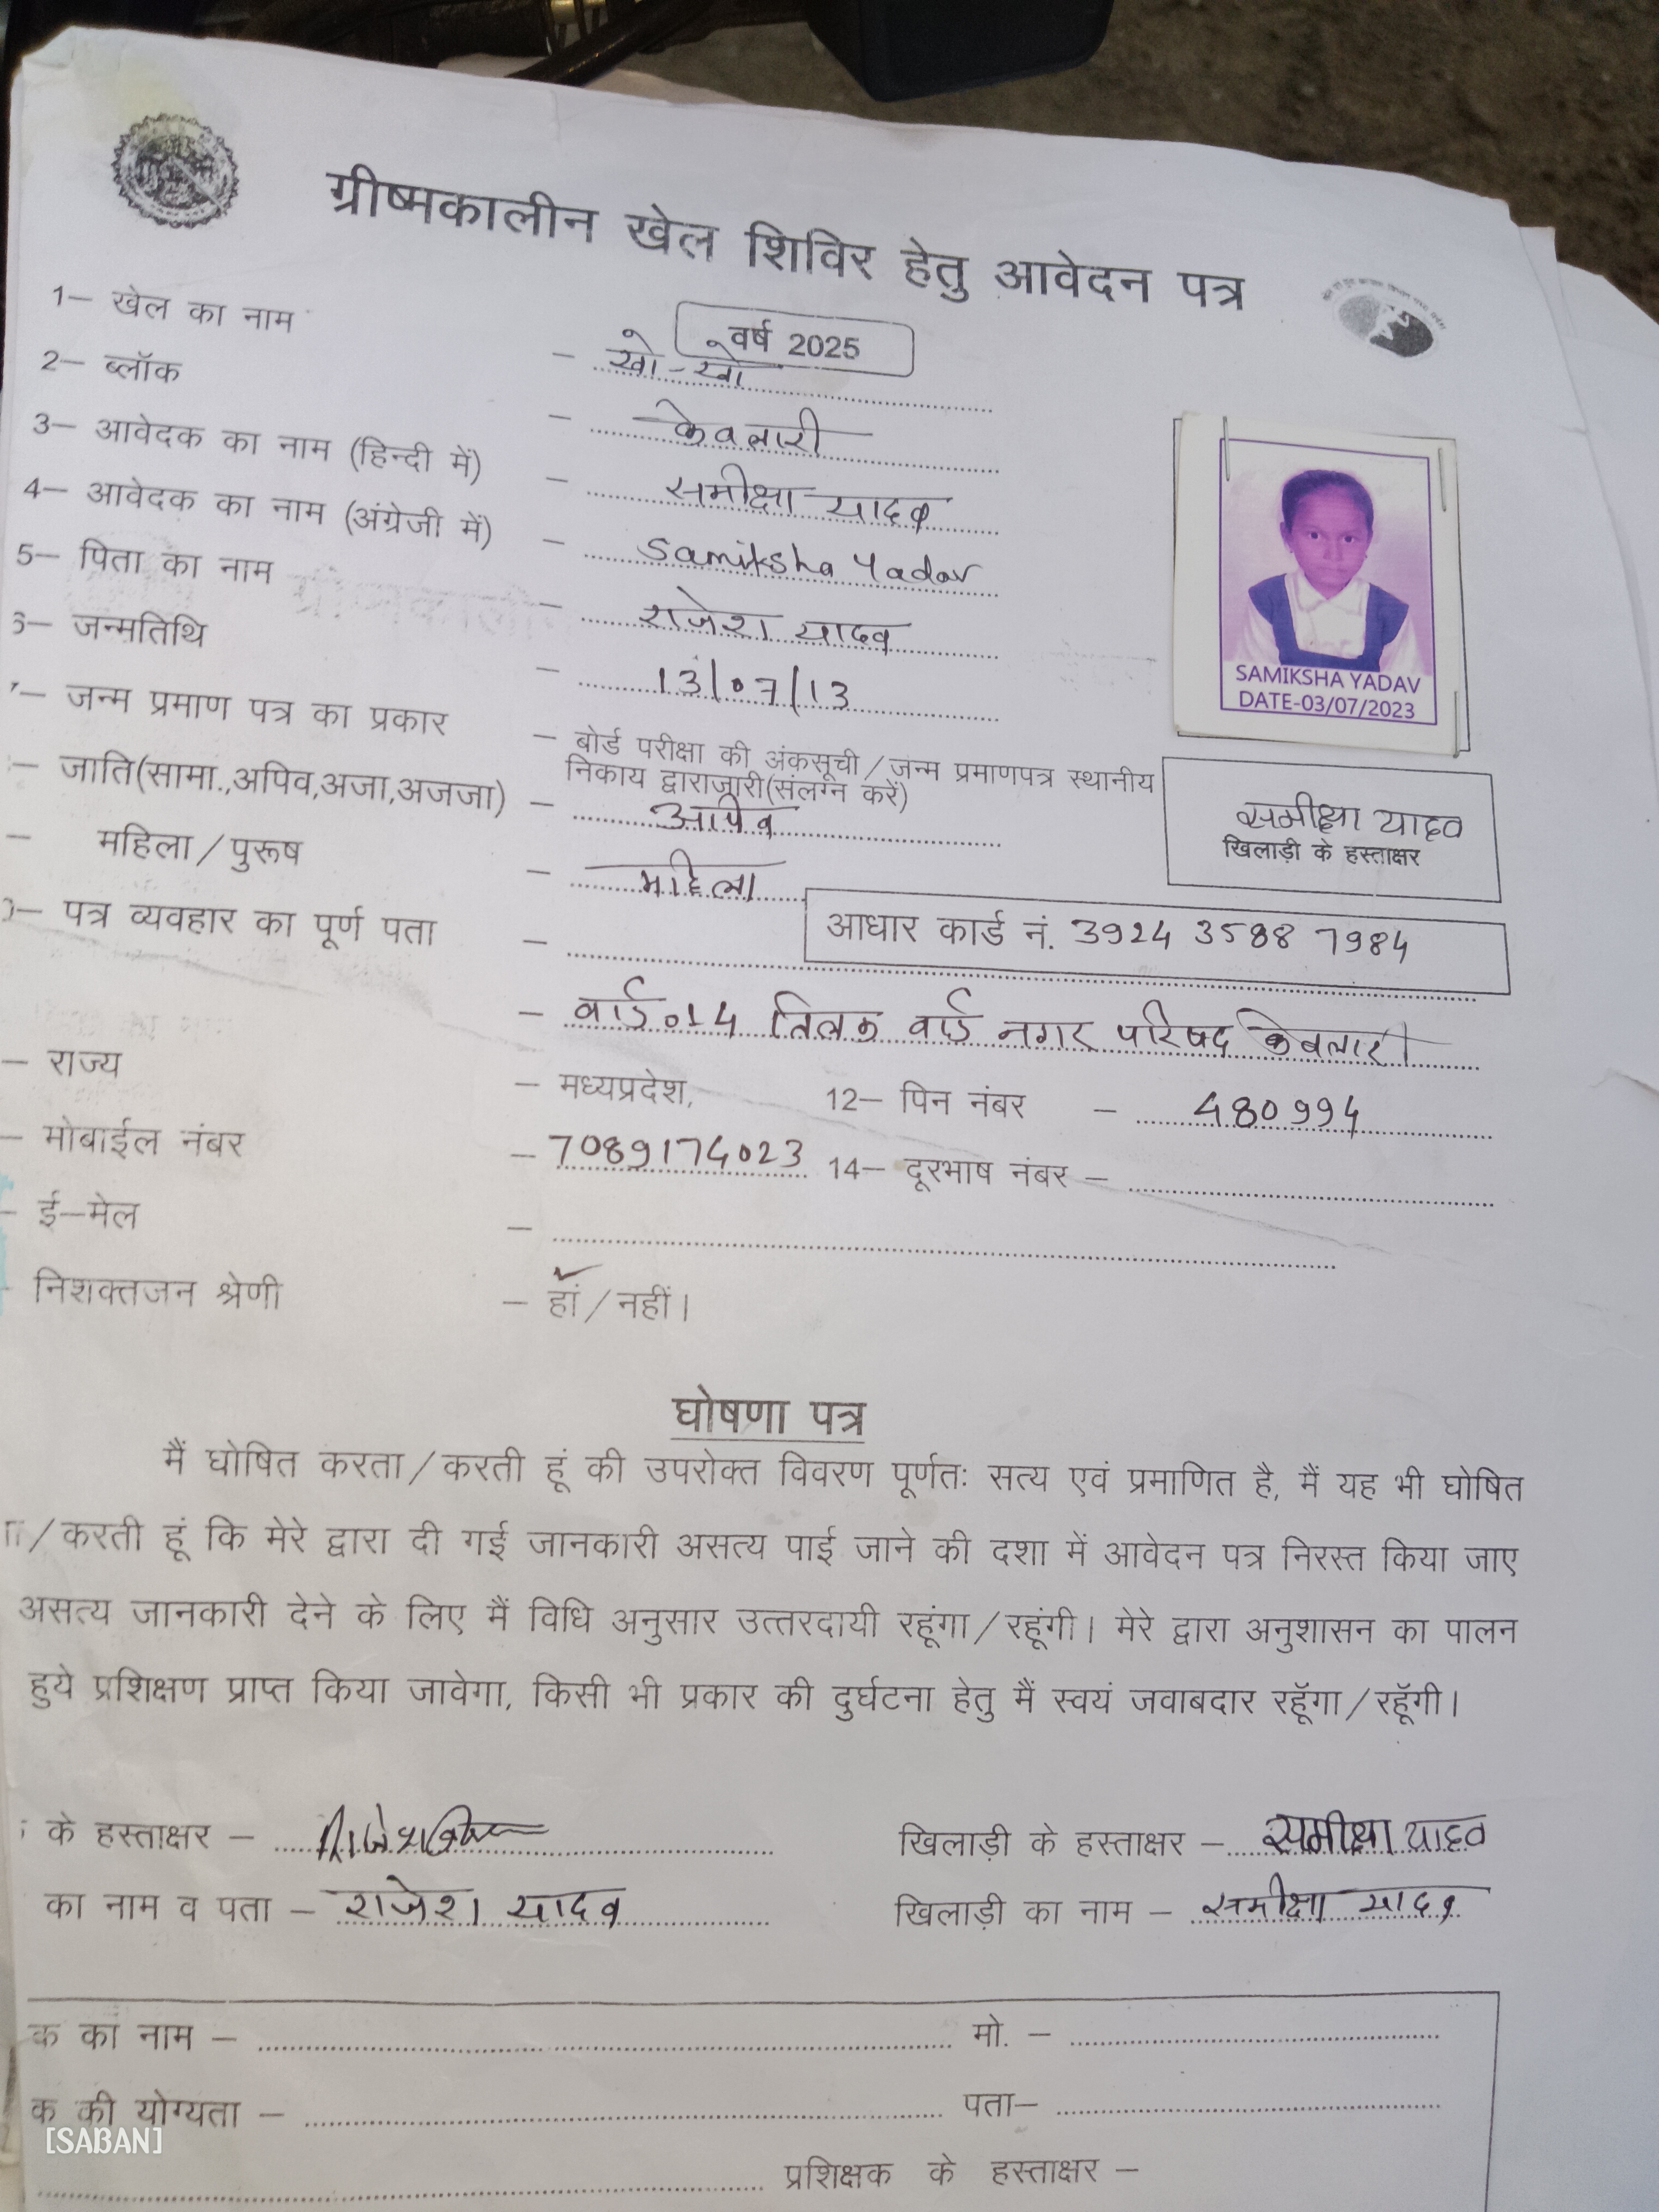 ग्रीष्मकालीन खेल शिविर हेतु आवेदन पत्र
वर्ष 2025
1– खेल का नाम – खो-खो
2– ब्लॉक – केवलारी
3– आवेदक का नाम (हिन्दी में) – समीक्षा यादव
4– आवेदक का नाम (अंग्रेजी में) – Samiksha Yadav
5– पिता का नाम – राजेश यादव
6– जन्मतिथि – 13/07/13
SAMIKSHA YADAV
DATE-03/07/2023
– जन्म प्रमाण पत्र का प्रकार – बोर्ड परीक्षा की अंकसूची/जन्म प्रमाणपत्र स्थानीय
निकाय द्वाराजारी(संलग्न करें)
– जाति(सामा.,अपिव,अजा,अजजा) – अपिव
समीक्षा यादव
खिलाड़ी के हस्ताक्षर
– महिला/पुरूष – महिला
आधार कार्ड नं. 3924 3588 7984
– पत्र व्यवहार का पूर्ण पता –
– वार्ड 14 तिलक वार्ड नगर परिषद केवलारी
– राज्य – मध्यप्रदेश, 12– पिन नंबर – 480994
– मोबाईल नंबर – 7089174023 14– दूरभाष नंबर –
– ई–मेल –
– निशक्तजन श्रेणी – हां/नहीं।
घोषणा पत्र
मैं घोषित करता/करती हूं की उपरोक्त विवरण पूर्णतः सत्य एवं प्रमाणित है, मैं यह भी घोषित
/करती हूं कि मेरे द्वारा दी गई जानकारी असत्य पाई जाने की दशा में आवेदन पत्र निरस्त किया जाए
असत्य जानकारी देने के लिए मैं विधि अनुसार उत्तरदायी रहूंगा/रहूंगी। मेरे द्वारा अनुशासन का पालन
हुये प्रशिक्षण प्राप्त किया जावेगा, किसी भी प्रकार की दुर्घटना हेतु मैं स्वयं जवाबदार रहूँगा/रहूँगी।
के हस्ताक्षर – खिलाड़ी के हस्ताक्षर – समीक्षा यादव
का नाम व पता – राजेश यादव खिलाड़ी का नाम – समीक्षा यादव
क का नाम – मो. –
क की योग्यता – पता–
[SABAN]
प्रशिक्षक के हस्ताक्षर –